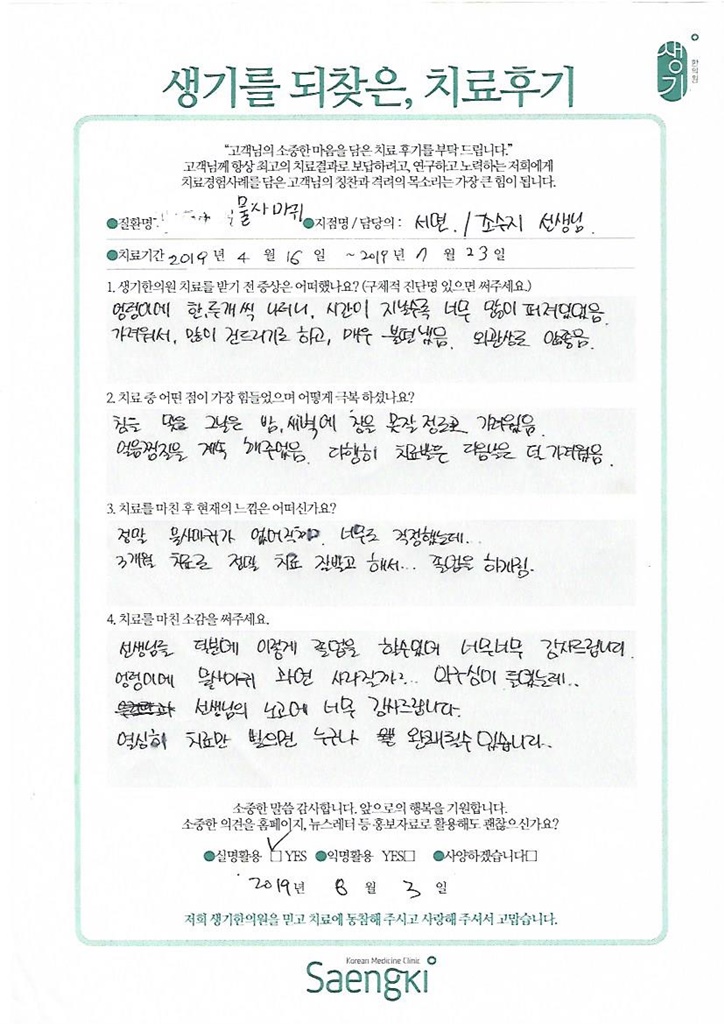 생기를 되찾은, 치료후기
생기
한의원
"고객님의 소중한 마음을 담은 치료 후기를 부탁 드립니다."
고객님께 항상 최고의 치료결과로 보답하려고, 연구하고 노력하는 저희에게
치료경험사례를 담은 고객님의 칭찬과 격려의 목소리는 가장 큰 힘이 됩니다.
●질환명: 물사마귀 ●지점명 / 담당의 : 서면 / 조수지 선생님.
●치료기간 2019 년 4 월 16 일 ~ 2019 년 7 월 23 일
1. 생기한의원 치료를 받기 전 증상은 어떠했나요? (구체적 진단명 있으면 써주세요.)
엉덩이에 한,두개씩 나더니, 시간이 지날수록 너무 많이 퍼져있었음.
가려워서, 많이 건드리기도 하고, 매우 불편했음. 외관상도 안좋음.
2. 치료 중 어떤 점이 가장 힘들었으며 어떻게 극복 하셨나요?
침을 맞은 그날은 밤, 새벽에 잠을 못잘 정도로 가려웠음.
얼음찜질을 계속 해주었음. 다행히 치료받은 다음날은 덜 가려웠음.
3. 치료를 마친 후 현재의 느낌은 어떠신가요?
정말 물사마귀가 없어질까. 너무도 걱정했는데...
3개월 치료로 정말 치료 잘받고 해서... 졸업을 하게됨.
4. 치료를 마친 소감을 써주세요.
선생님들 덕분에 이렇게 졸업을 할수있어 너무너무 감사드립니다.
엉덩이에 물사마귀 과연 사라질까?.. 의구심이 들었는데..
선생님의 노고에 너무 감사드립니다.
열심히 치료만 받으면 누구나 완쾌될수 있습니다..
소중한 말씀 감사합니다. 앞으로의 행복을 기원합니다.
소중한 의견을 홈페이지, 뉴스레터 등 홍보자료로 활용해도 괜찮으신가요?
●실명활용 □ YES ●익명활용 YES□ ●사양하겠습니다□
2019 년 8 월 3 일
저희 생기한의원을 믿고 치료에 동참해 주시고 사랑해 주셔서 고맙습니다.
Korean Medicine Clinic
Saengki